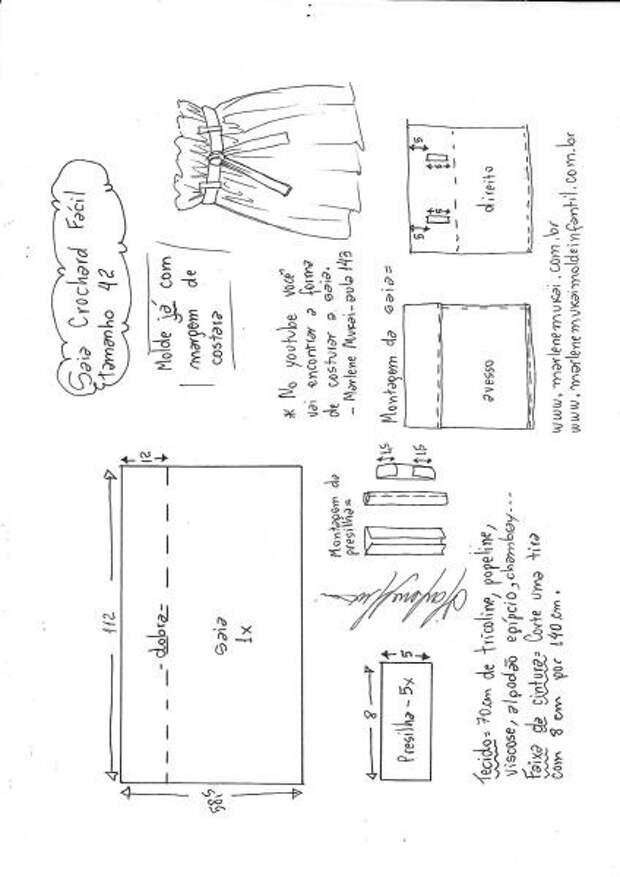 Saia Crochard Fácil
tamanho 42
Molde já com
margem de
costura
* No youtube você
vai encontrar a forma
de costurar a saia.
- Marlene Mukai - aula 143
112
12
58,5
- dobra =
saia
1x
Montagem da
presilha =
1,5
1,5
Montagem da saia =
avesso
5
5
5
5
direito
www.marlenemukai.com.br
www.marlenemukaimoldeinfantil.com.br
8
5
Presilha - 5x
Tecido = 70cm de tricoline, popeline,
viscose, algodão egípcio, chambray...
Faixa de cintura = Corte uma tira
com 8 cm por 140 cm.